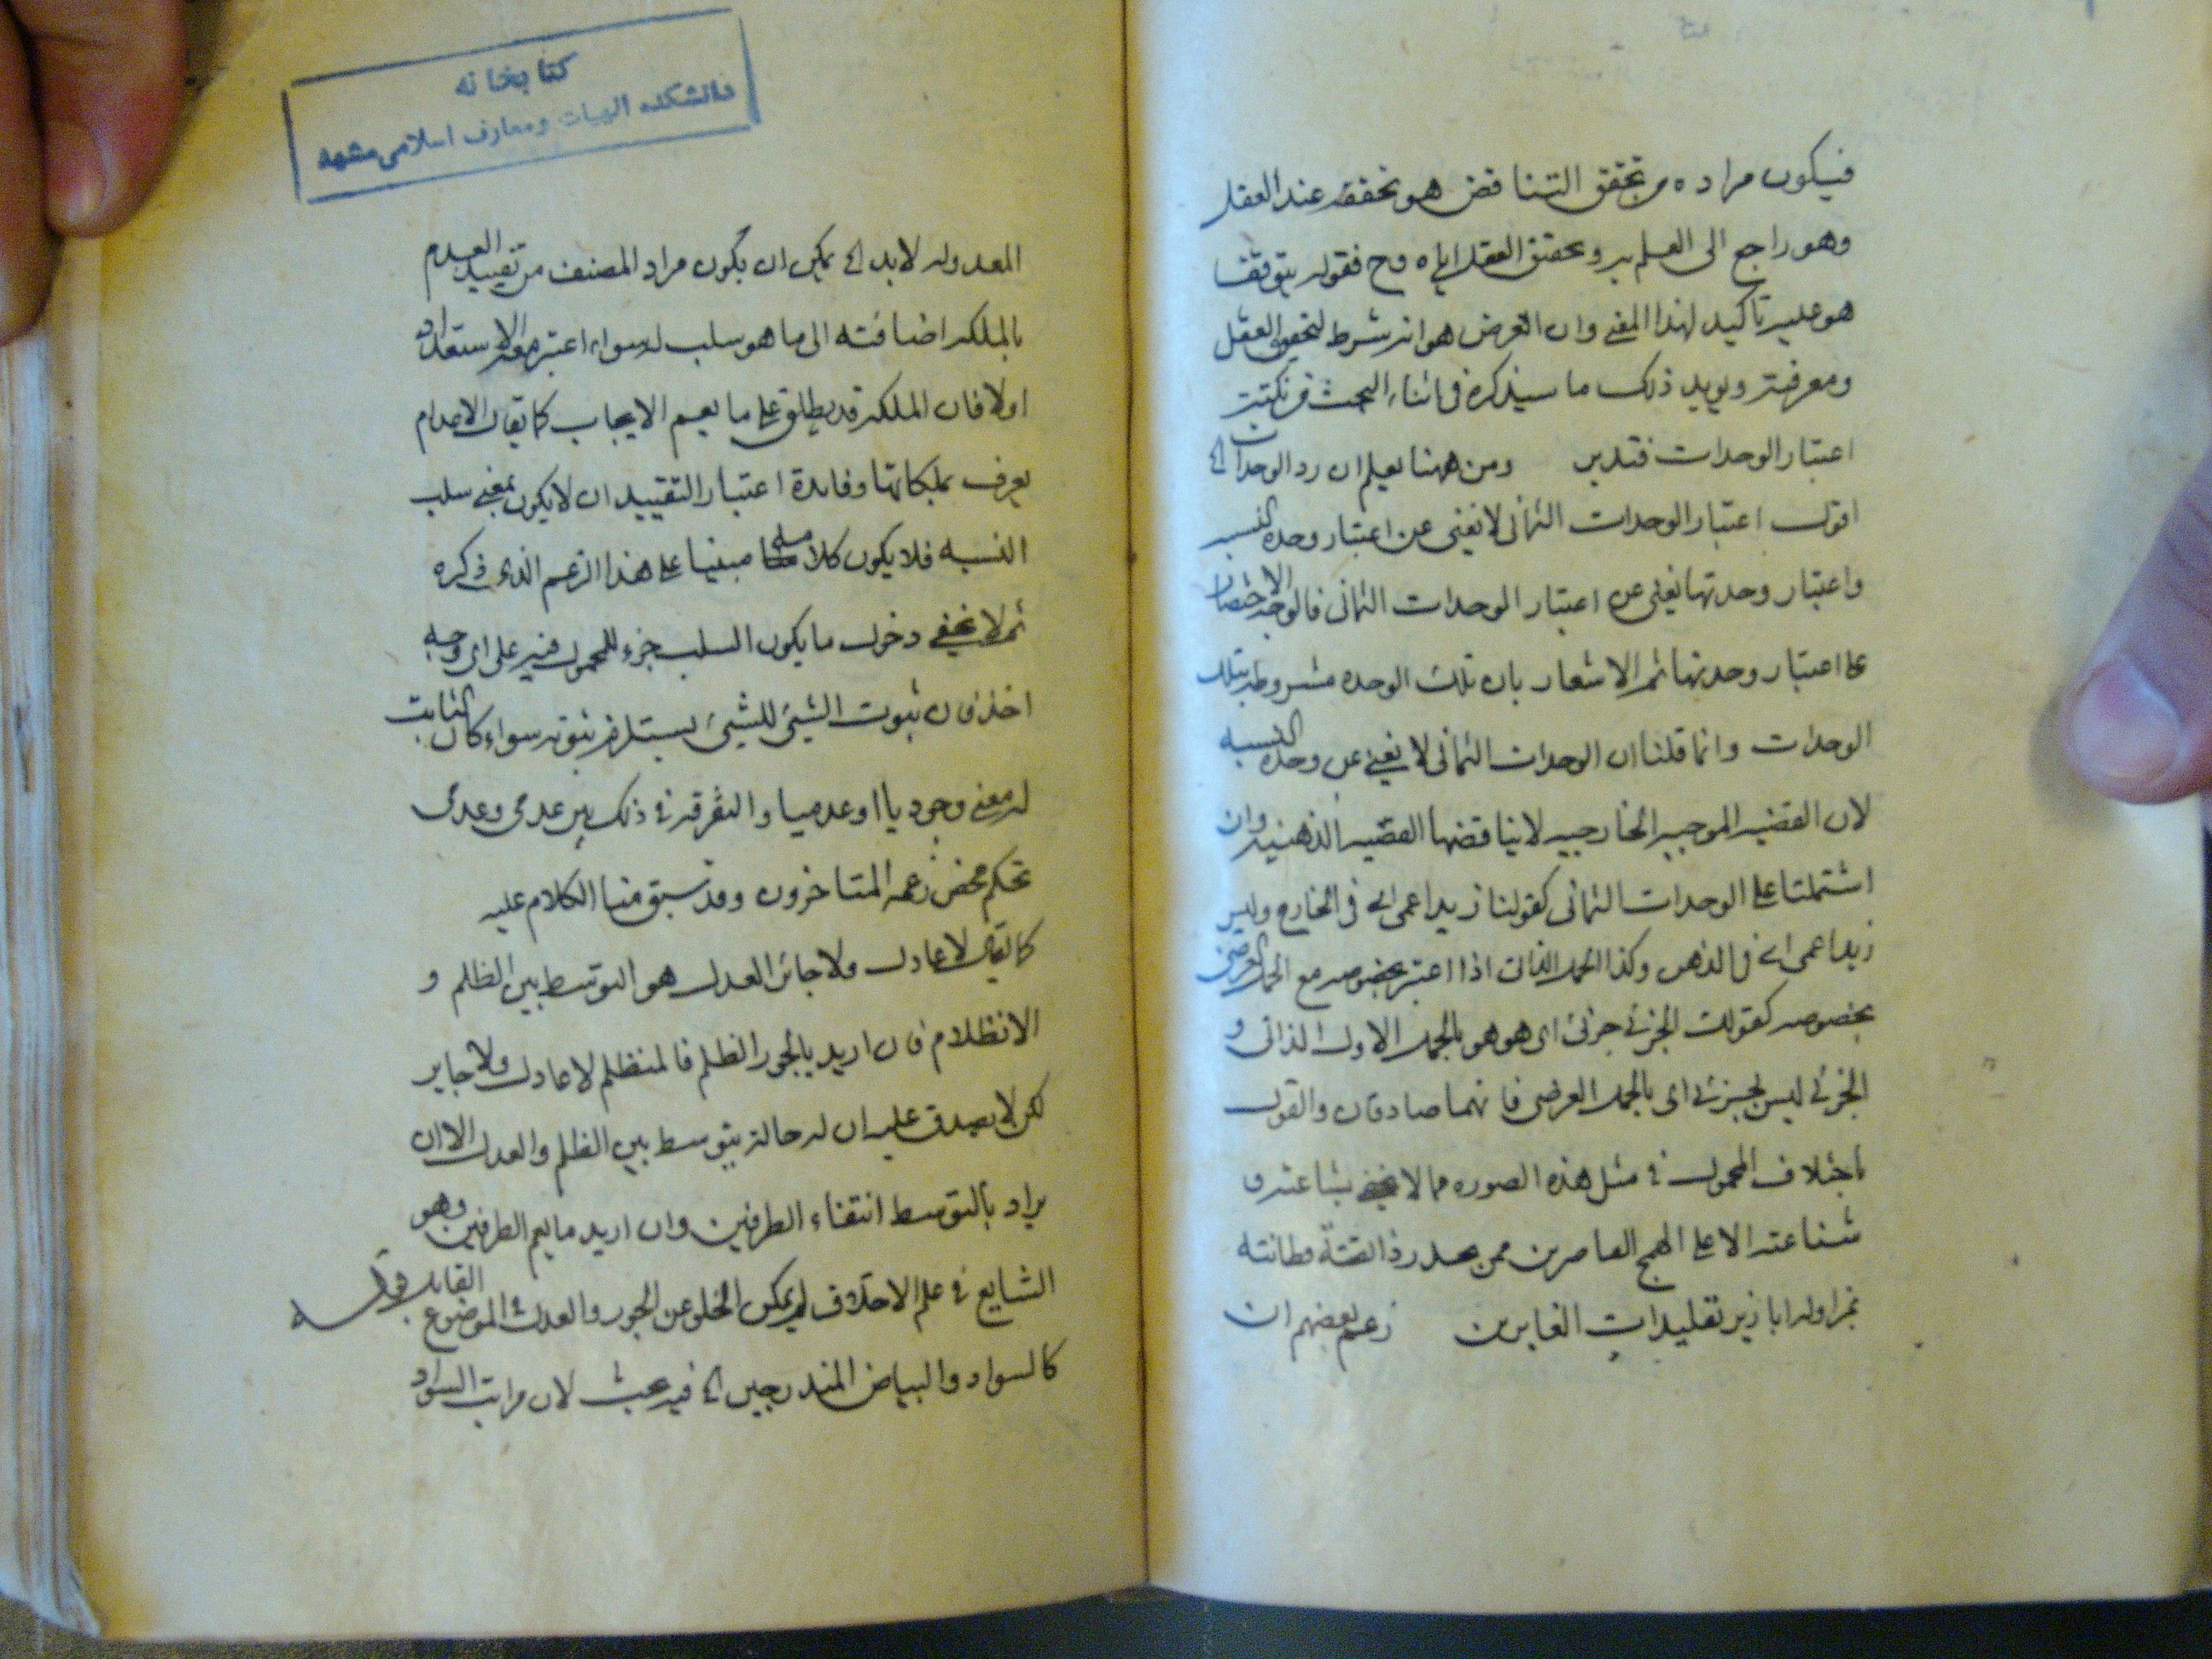 فيكون مراده من تحقق التناقض هو تحققه عند العقل
وهو راجع الى العلم به وتحقق العقل اياه وح فقوله يتوقف
هو عليه تاكيد لهذا المعنى وان الغرض هو انه شرط لتحقق العقل
ومعرفته ويويد ذلك ما سيذكره في اثناء البحث من نكتة
اعتبار الوحدات فتدبر ومن ههنا يعلم ان رد الوحدات الخ
اقول اعتبار الوحدات الثمانى لا يغنى عن اعتبار وحدة النسبه
واعتبار وحدتها يغنى عن اعتبار الوحدات الثمانى فالوجه الاختصار
على اعتبار وحدتها ثم الاشعار بان تلك الوحده مشروطه بتلك
الوحدات وانما قلنا ان الوحدات الثمانى لا يغنى عن وحدة النسبه
لان القضيه الموجبه الخارجيه لا يناقضها القضيه الذهنيه وان
اشتملتا على الوحدات الثمانى كقولنا زيد اعمى اى فى الخارج وليس
زيد اعمى اى فى الذهن وكذا الحمل الذاتى اذا اعتبر بخصوصه مع الحمل العرضى
بخصوصه كقولك الجزئى جزئى اى هو هو بالحمل الاول الذاتى و
الجزئى ليس بجزئى اى بالحمل العرضى فانهما صادقان والقول
باختلاف المحمول فى مثل هذه الصوره مما لا يخفى بشاعته و
شناعته الا على الهمج العاصرين ممن
تقليدات الغابرين زعم بعضهم ان
كتابخانه
دانشكده الهيات ومعارف اسلامى مشهد
المعدوله لا بد الخ يمكن ان يكون مراد المصنف من تقييد العدم
بالملكه اضافته الى ما هو سلب له سواء اعتبر معه الاستعداد
اولا فان الملكه قد يطلق على ما يعم الايجاب كما يقال الاعدام
يعرف بملكاتها وفايدة اعتبار التقييد ان لا يكون بمعنى سلب
النسبه فلا يكون كلامه مبنيا على هذا الزعم الذى ذكره
ثم لا يخفى دخول ما يكون السلب جزء للمحمول فيه على اى وجه
اخذ فان ثبوت الشيئ للشيئ يستلزم ثبوته سواء كان الثابت
له معنى وجوديا او عدميا والتفرقه فى ذلك بين عدمى وعدمى
تحكم محض زعمه المتاخرون وقد سبق منا الكلام عليه
كما يقال لا عادل ولا جائر العدل هو التوسط بين الظلم و
الانظلام فان اريد بالجور الظلم فالمنظلم لا عادل ولا جاير
لكن لا يصدق عليه ان له حالة يتوسط بين الظلم والعدل الا ان
يراد بالتوسط انتفاء الطرفين وان اريد ما يعم الطرفين وهو
الشايع فى علم الاخلاق لم يمكن الخلو عن الجور والعدل فى الموضوع القابل قوله
كالسواد والبياض المندرجين الخ فيه بحث لان مراتب السواد